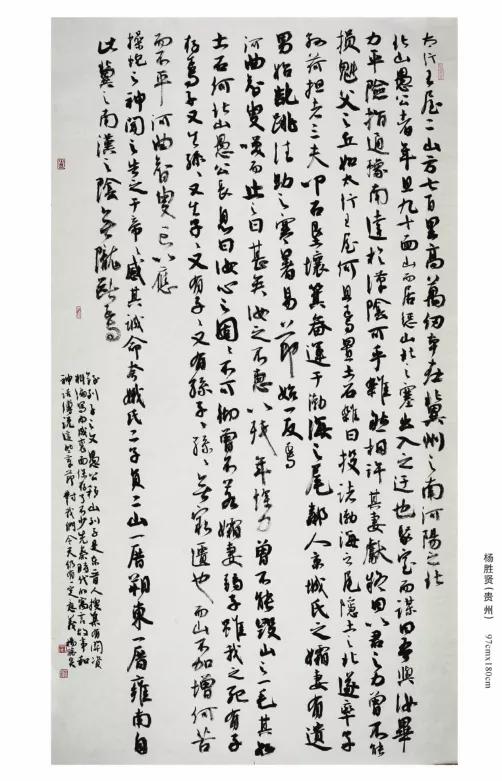 太行王屋二山方七百里高萬仞本在冀州之南河陽之北
北山愚公者年且九十面山而居懲山北之塞出入之迂也聚室而謀曰吾與汝畢
力平險指通豫南達於漢陰可乎雜然相許其妻獻疑曰以君之力曾不能
損魁父之丘如太行王屋何且焉置土石雜曰投諸渤海之尾隱土之北遂率子
孫荷担者三夫叩石墾壤箕畚運于渤海之尾鄰人京城氏之孀妻有遺
男始齔跳往助之寒暑易節始一反焉
河曲智叟笑而止之曰甚矣汝之不惠以殘年餘力曾不能毀山之一毛其如
土石何北山愚公長息曰汝心之固々不可徹曾不若孀妻弱子雖我之死有子
存焉子又生孫々又生子々又有子々又有孫子々孫々無窮匱也而山不加增何苦
而不平河曲智叟亡以應
操蛇之神聞之告之于帝感其誠命夸娥氏二子負二山一厝朔東一厝雍南自
此冀之南漢之陰無隴斷焉
列子之文愚公移山列子是东晋人搜集有関資
料編寫而成書而保存了不少先秦時代的寓言故事和
神话傳説這些章節對我們今天仍有一定意義 楊胜贤
杨胜贤(贵州) 97cmx180cm